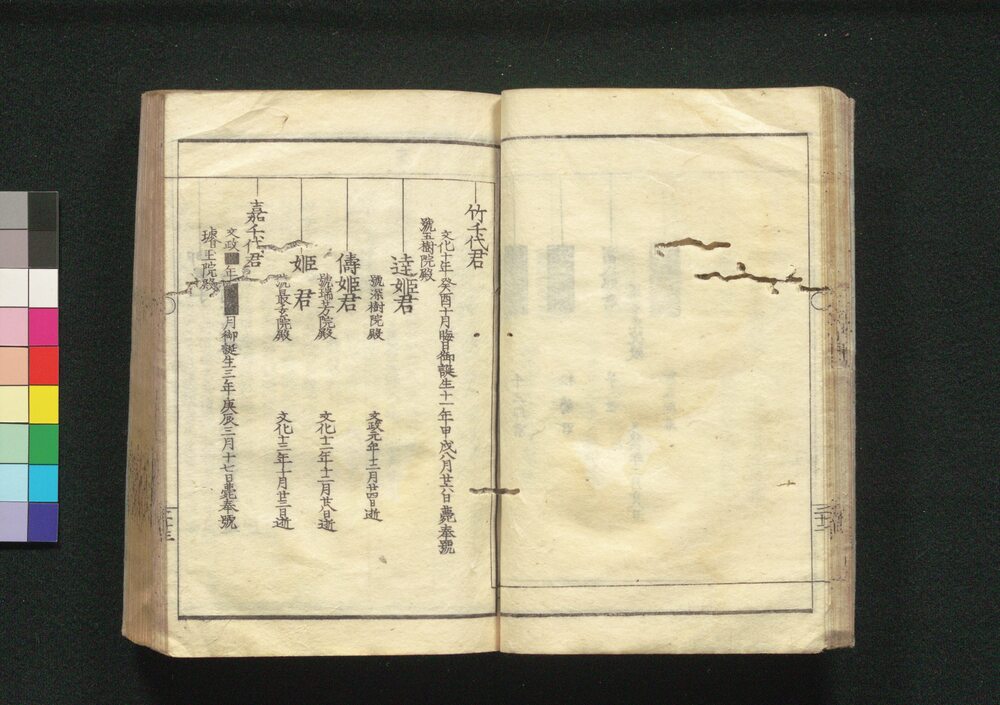 竹千代君
文化十年癸酉十月晦日御誕生十一年甲戌八月廿六日薨奉號
號玉樹院殿
逹姬君
號深樹院殿
文政元年十二月廿四日逝
儔姬君
號瑞芳院殿
文化十二年十二月廿八日逝
姬君
院殿
文化十三年十月廿三日逝
嘉千代君
文政年月御誕生三年庚辰三月十七日薨奉號
玉院殿